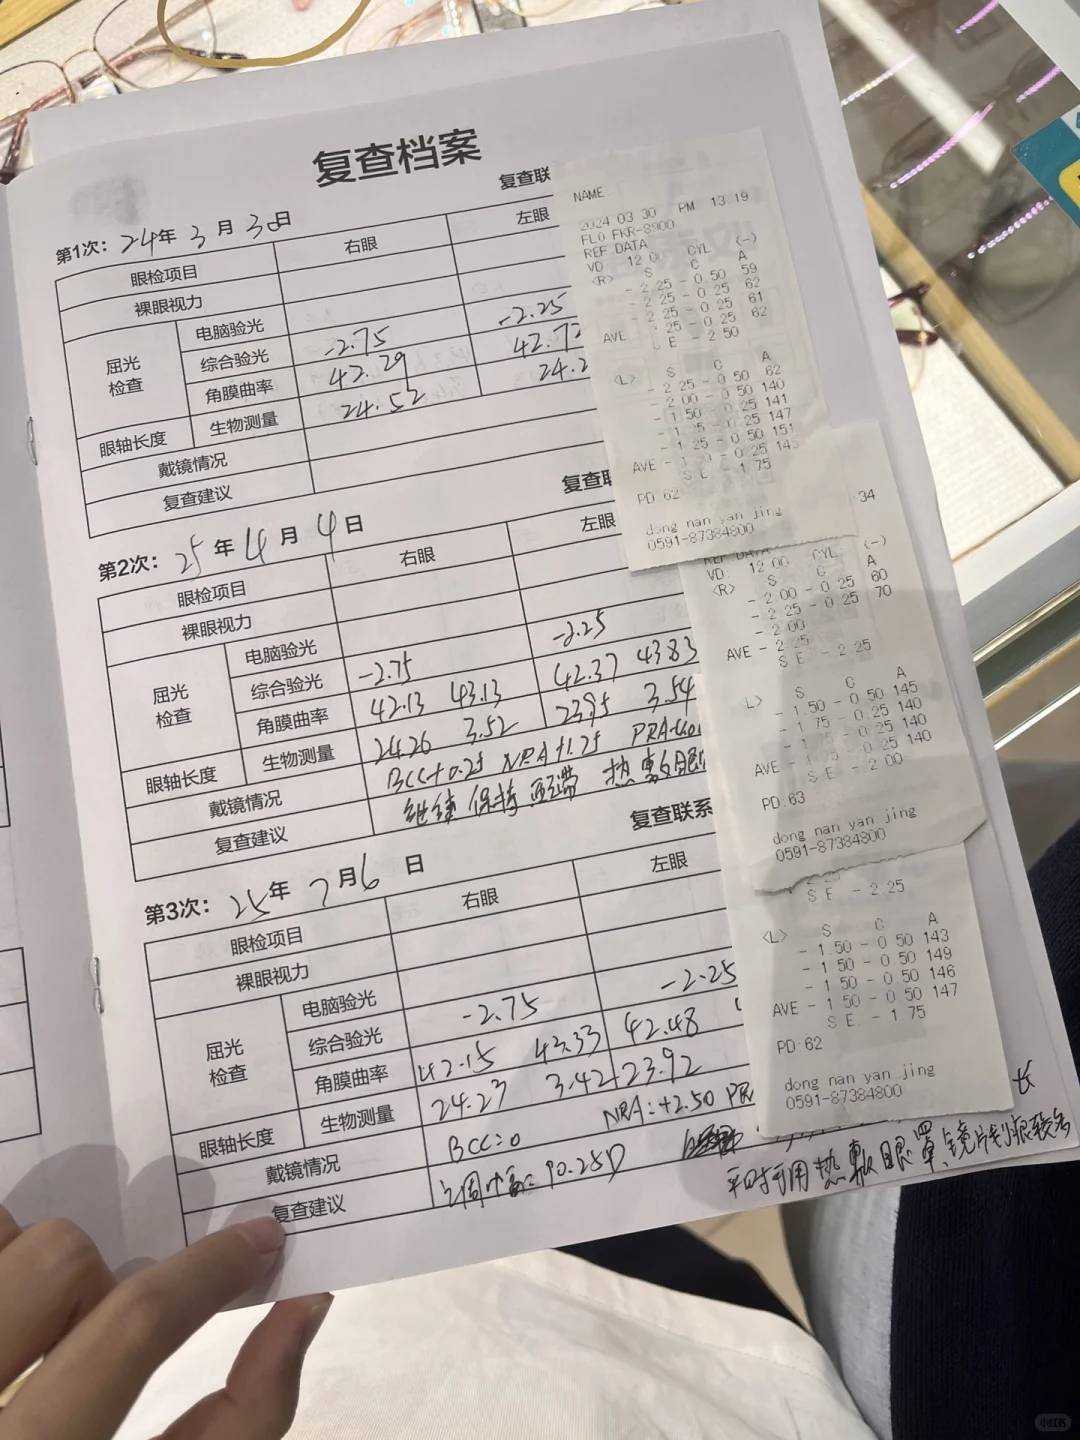 复查档案
复查联
第1次: 24年 3月 30日
眼检项目 右眼 左眼
裸眼视力
屈光检查 电脑验光
综合验光 -2.75 -2.25
角膜曲率 42.29 42.72
眼轴长度 生物测量 24.52 24.2
戴镜情况
复查建议
复查联
第2次: 25年 4月 4日
眼检项目 右眼 左眼
裸眼视力
屈光检查 电脑验光
综合验光 -2.75 -2.25
角膜曲率 42.13 43.13 42.37 43.83
眼轴长度 生物测量 24.26 3.52 23.95 3.54
戴镜情况 BCC+0.25 NRA+1.75
复查建议 继续保持 热敷
复查联系
第3次: 25年 7月6日
眼检项目 右眼 左眼
裸眼视力
屈光检查 电脑验光
综合验光 -2.75 -2.25
角膜曲率 42.15 43.33 42.48
眼轴长度 生物测量 24.23 3.42 23.92
戴镜情况 BCC=0 NRA=+2.50 PR
复查建议
平时可用热敷眼罩,镜片划痕较多
NAME
2024 03 30 PM 13 19
FLO FKR-8900
REF DATA
VD 12 0 CYL (-)
<R> S C A
- 2 25 - 0 50 59
- 2 25 - 0 25 62
- 2 25 - 0 25 61
AVE 25 - 0 25 62
S E - 2 50
<L> S C A
- 2 25 - 0 50 62
- 2 00 - 0 50 140
- 1 50 - 0 25 141
25 - 0 25 147
- 1 25 - 0 50 151
AVE 0 25
S E - 1 75
PD 62
dong nan yan jing
0591-87384800
34
REF DATA
VD 12 00 CYL (-)
<R> S C A
- 2 00 - 0 25 60
- 2 25 - 0 25 70
- 2 00
AVE - 2 25
S E - 2 25
L> S C A
- 1 50 - 0 50 145
- 1 75 - 0 25 140
- 0 25 140
AVE - 1 75 - 0 25 140
S E - 2 00
PD 63
dong nan yan jing
0591-87384800
S E - 2 25
<L> S C A
- 1 50 - 0 50 143
- 1 50 - 0 50 149
- 1 50 - 0 50 146
AVE - 1 50 - 0 50 147
S E - 1 75
PD 62
dong nan yan jing
0591-87384800
小红书